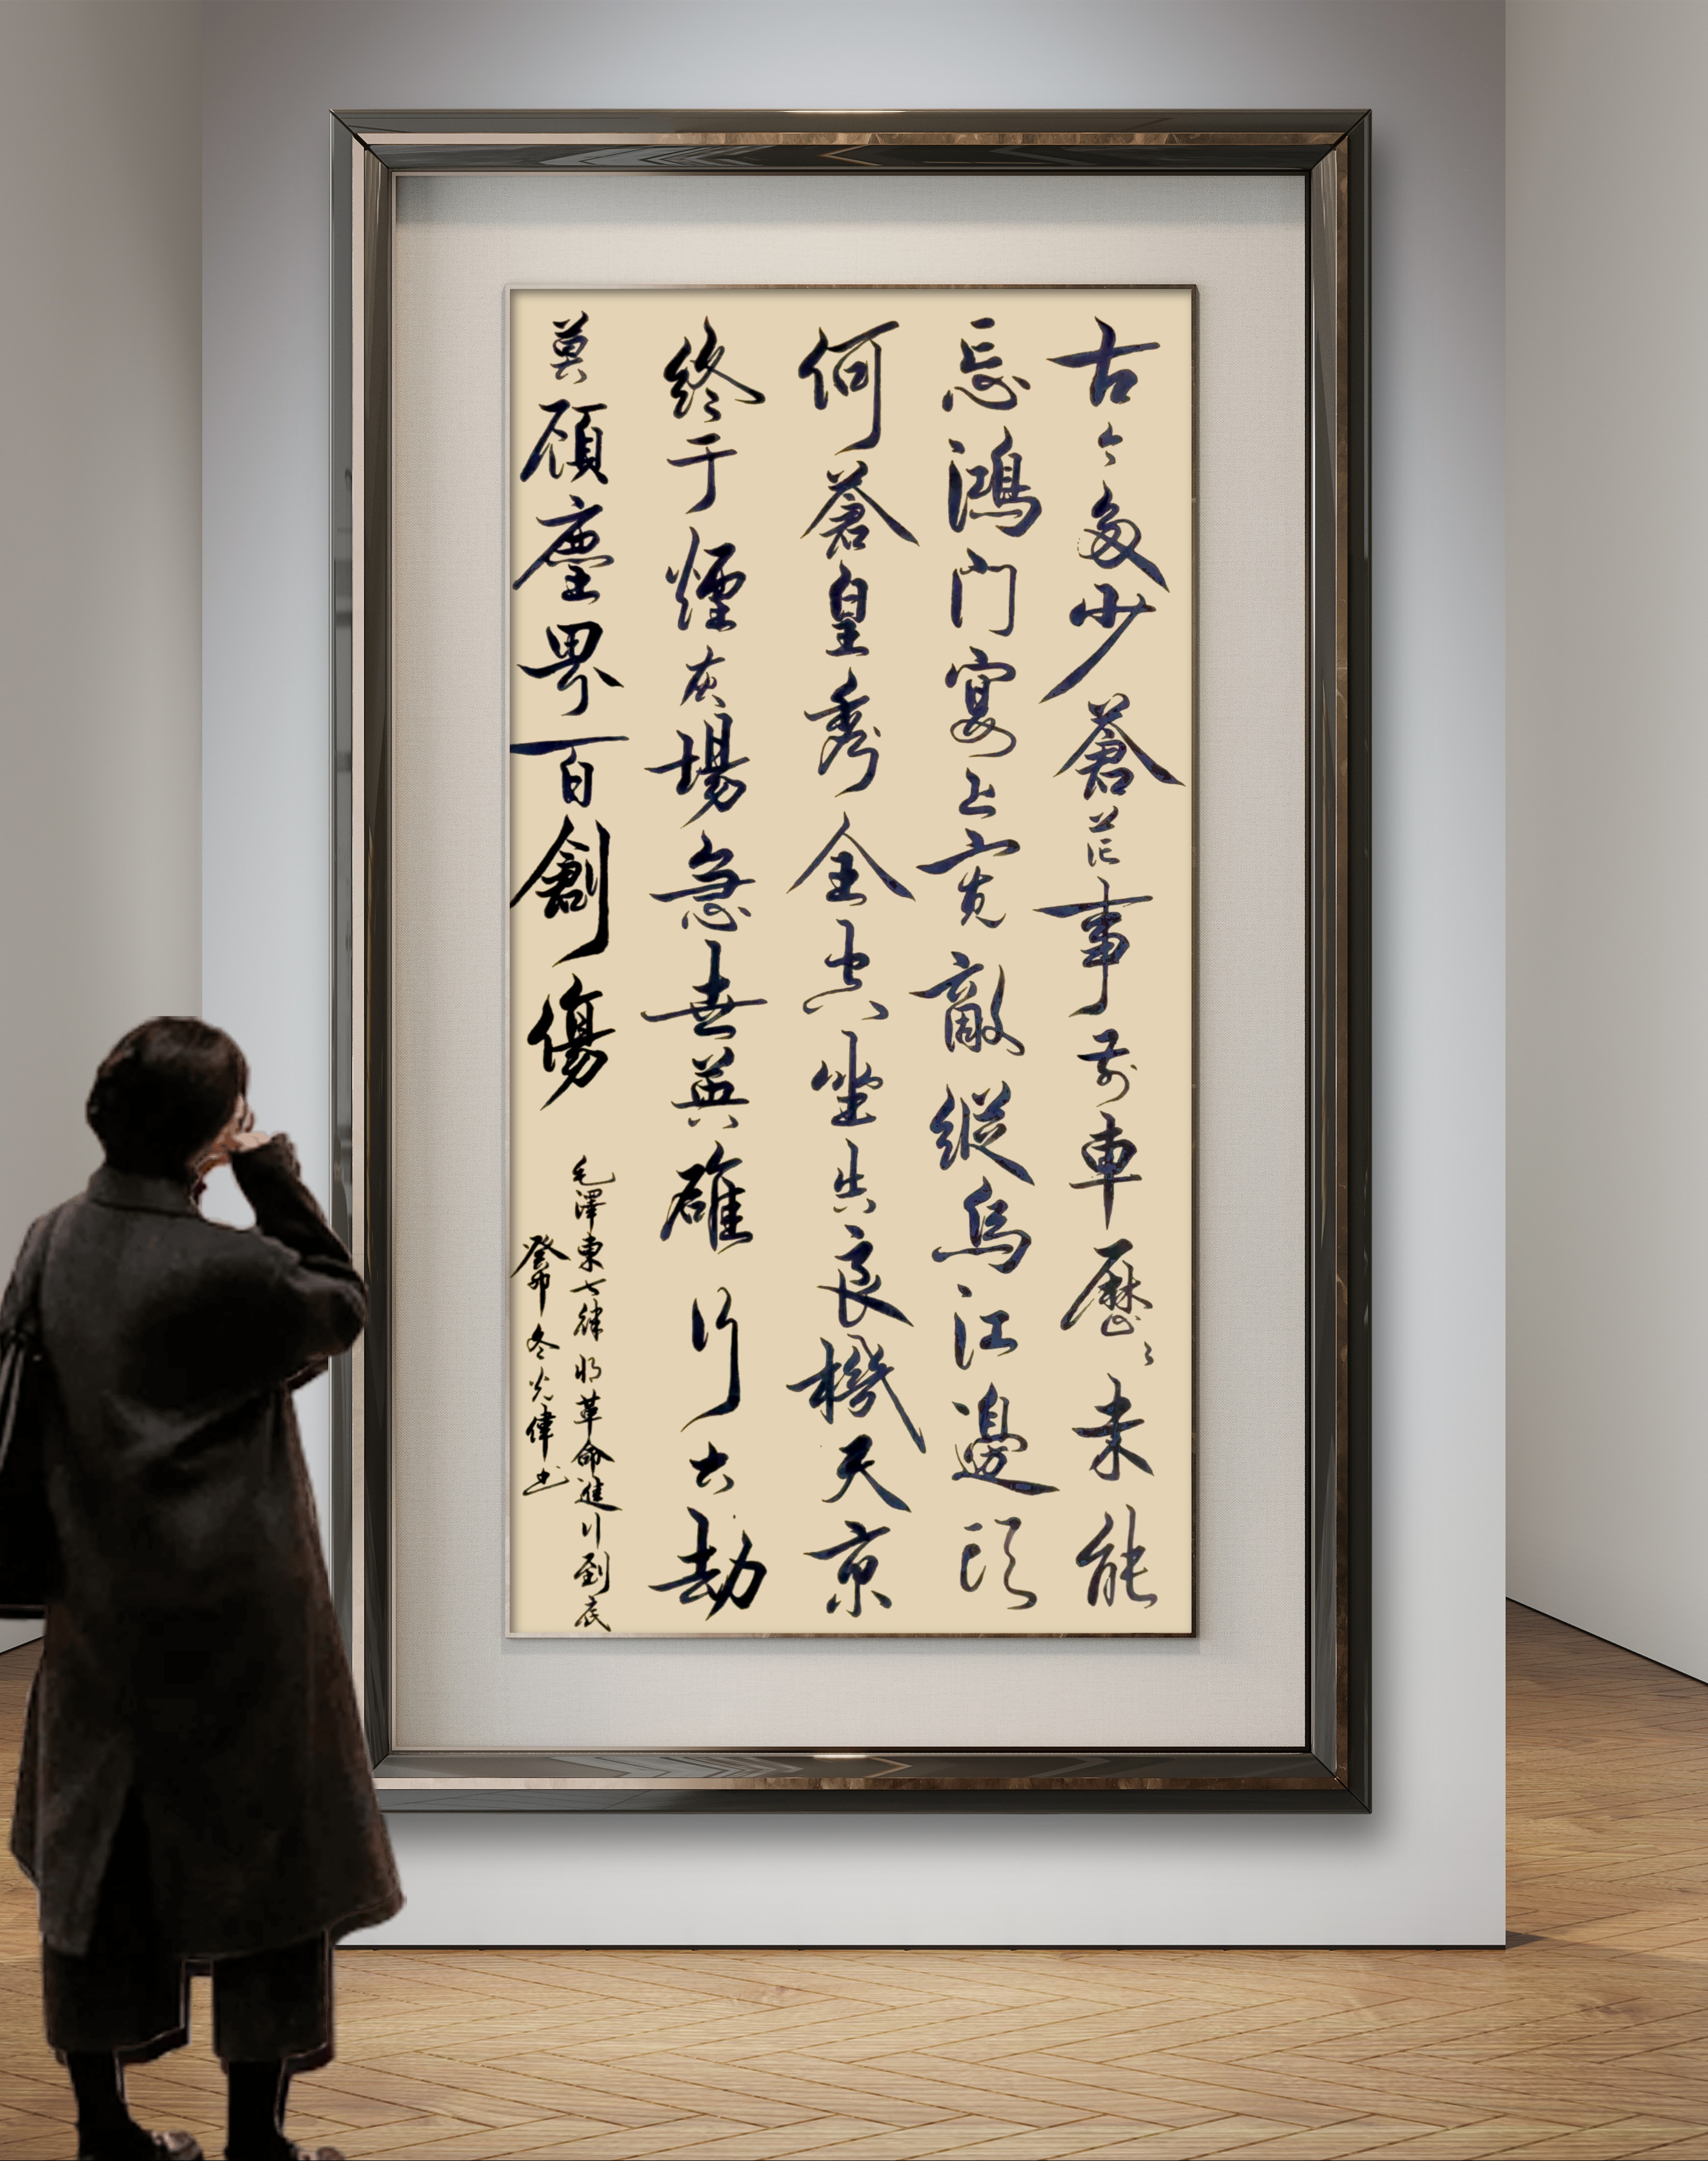 古今多少蒼茫事前車歷歷未能
忘鴻门宴上宽敵縱烏江邊頭
何蒼皇秀全空坐失良機天京
終于煙灰場急世英雄行大劫
莫顧塵界百創傷
毛澤東七律將革命進行到底
癸卯冬光偉书